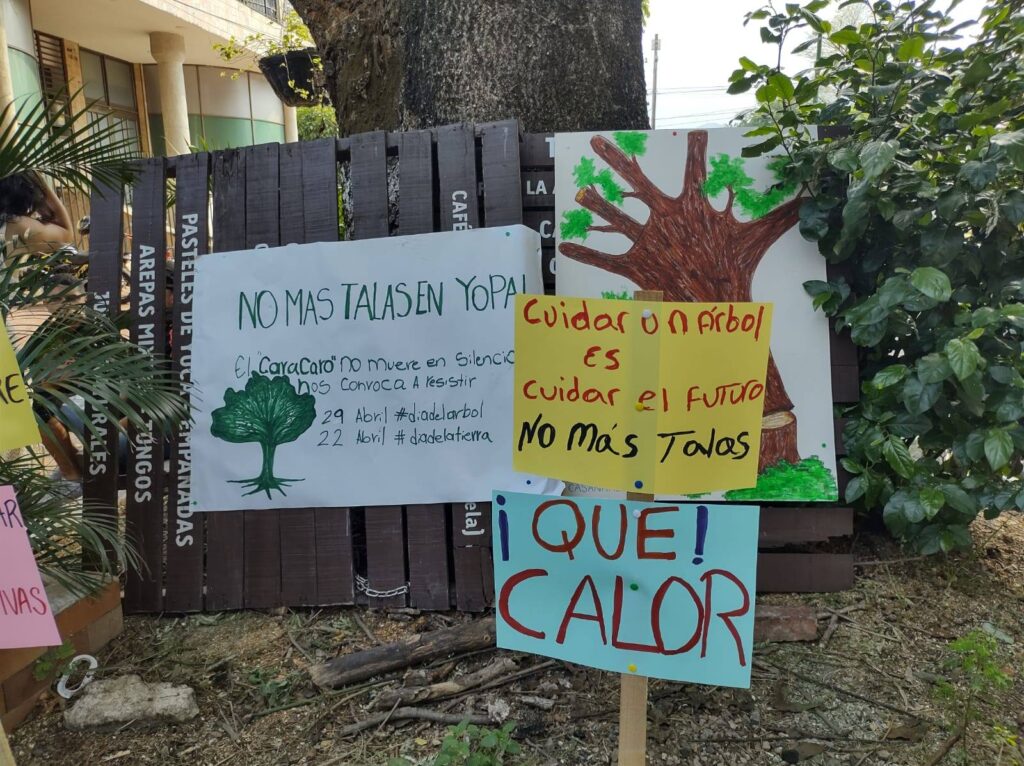 NO MAS TALAS EN YOPAL
El "CaraCaro" no muere en Silencio
nos Convoca A resistir
29 Abril #diadelarbol
22 Abril #diadelatierra
Cuidar un Árbol
Es
Cuidar el Futuro
No Más Talas
¡QUE!
CALOR
PASTELES DE YUCA
EMPANADAS
AREPAS
TUNGOS
CAFÉ
LA
CASANA
RE
AR
IVAS